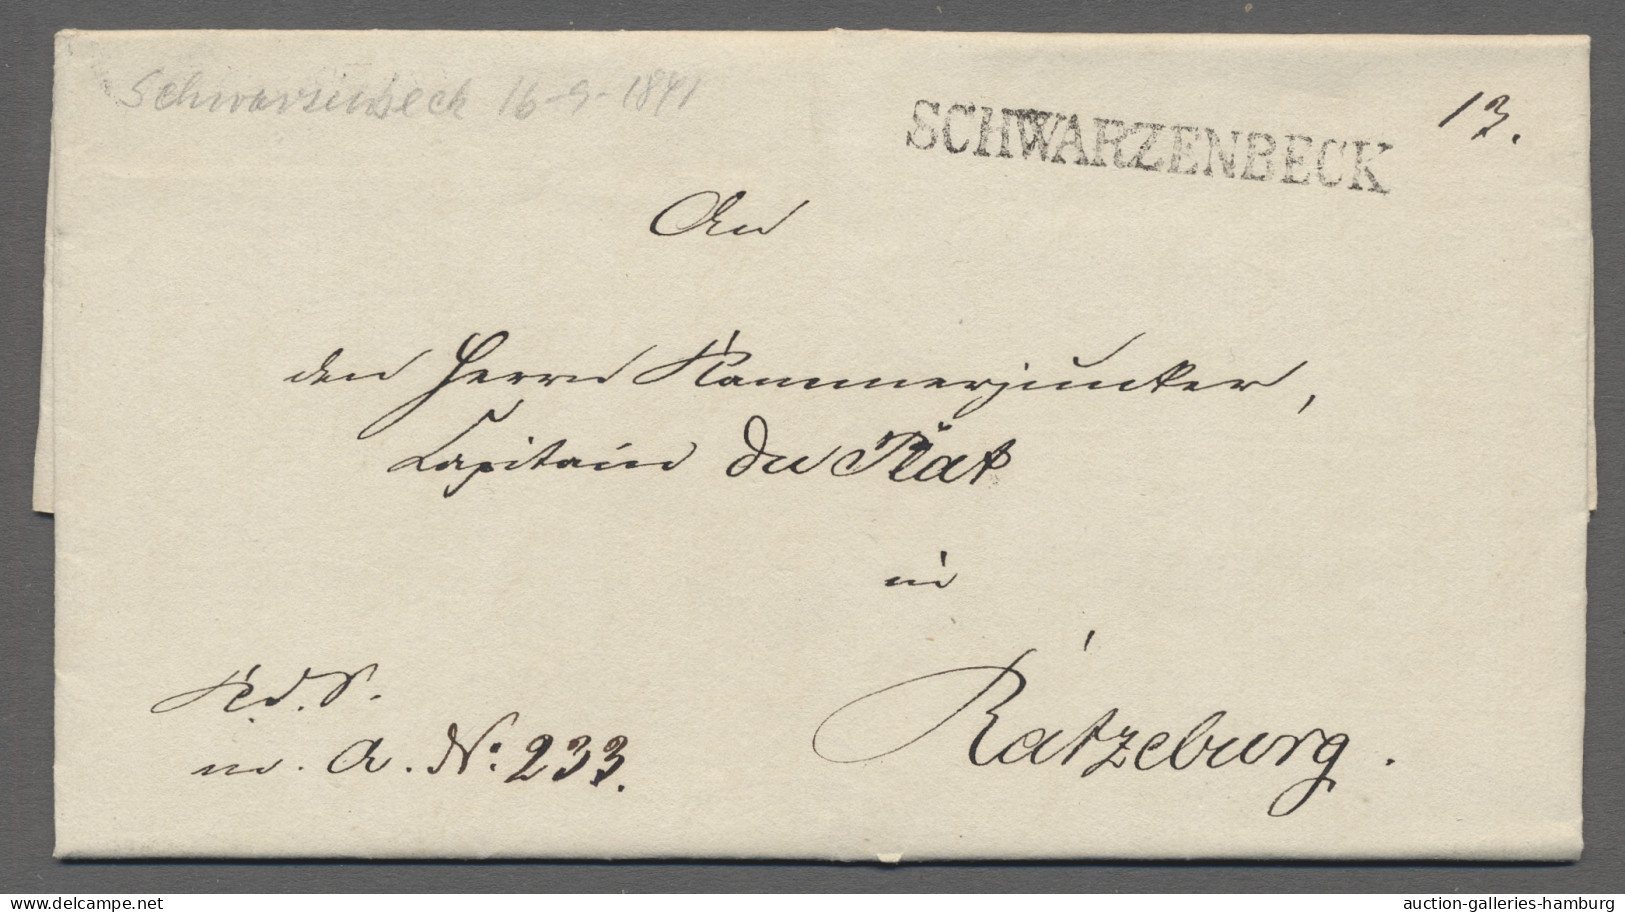 Schwarzenbeck 16-9-1841
SCHWARZENBECK
13.
An
den Herrn Kammerjunker,
Capitain Du Plat
in
Ratzeburg.
K. d. S.
m. A. No: 233.
delcampe.net
auction-galleries-hamburg